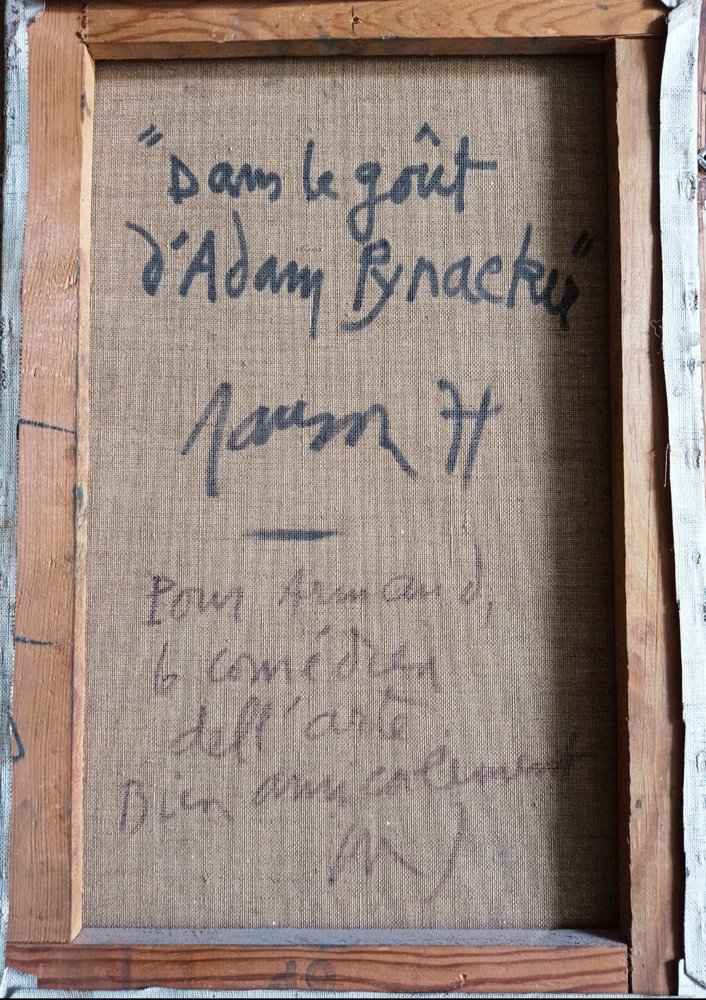 "Dans le goût
d'Adam Pynacker"
Pour Armand,
le comédien
dell'arte
Bien amicalement